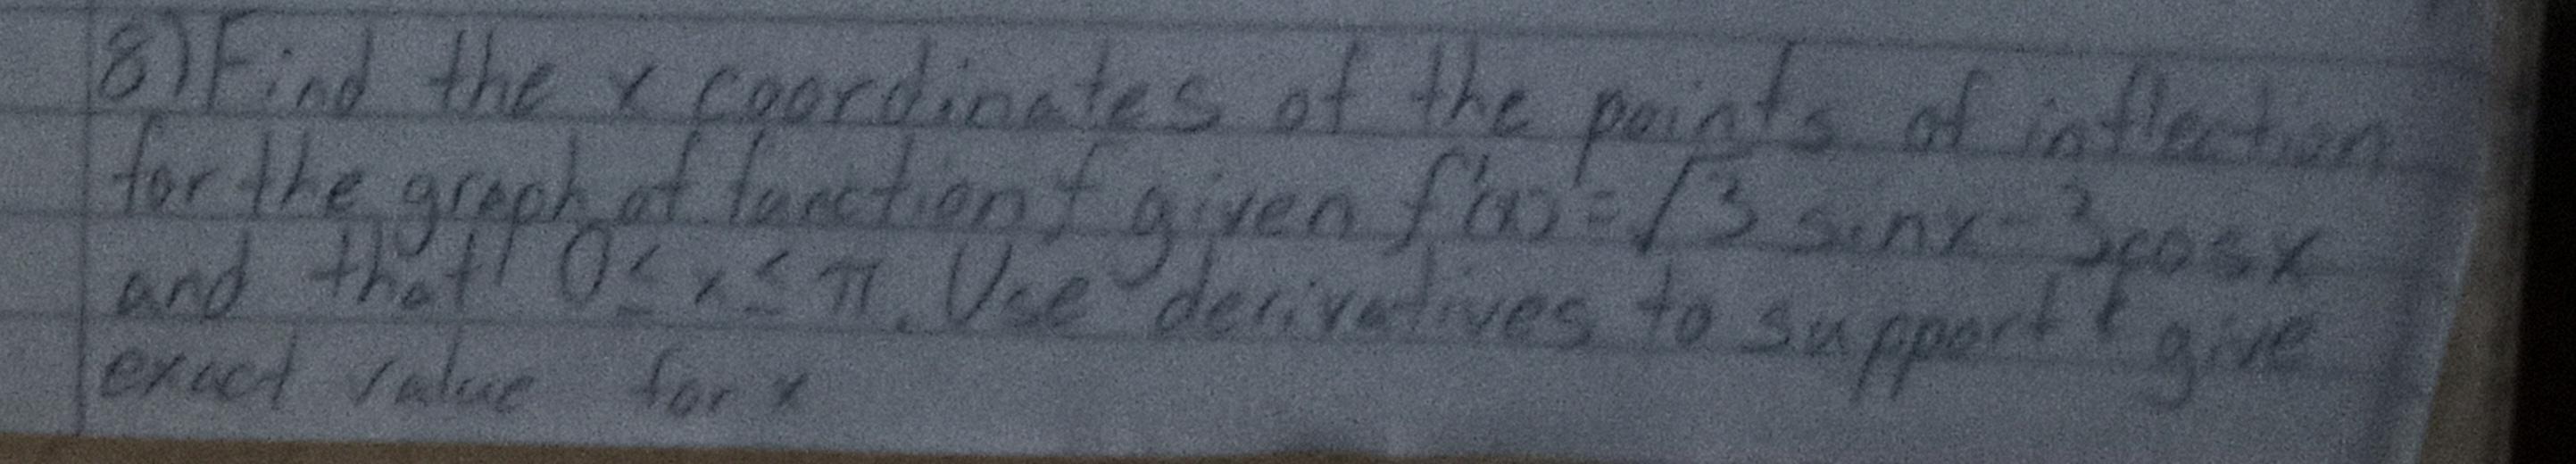 8) Find the x coordinates of the points of inflection
for the graph of function f given f'(x) = √3 sinx - 3cosx
and that 0 ≤ x ≤ π. Use derivatives to support & give
exact value for x